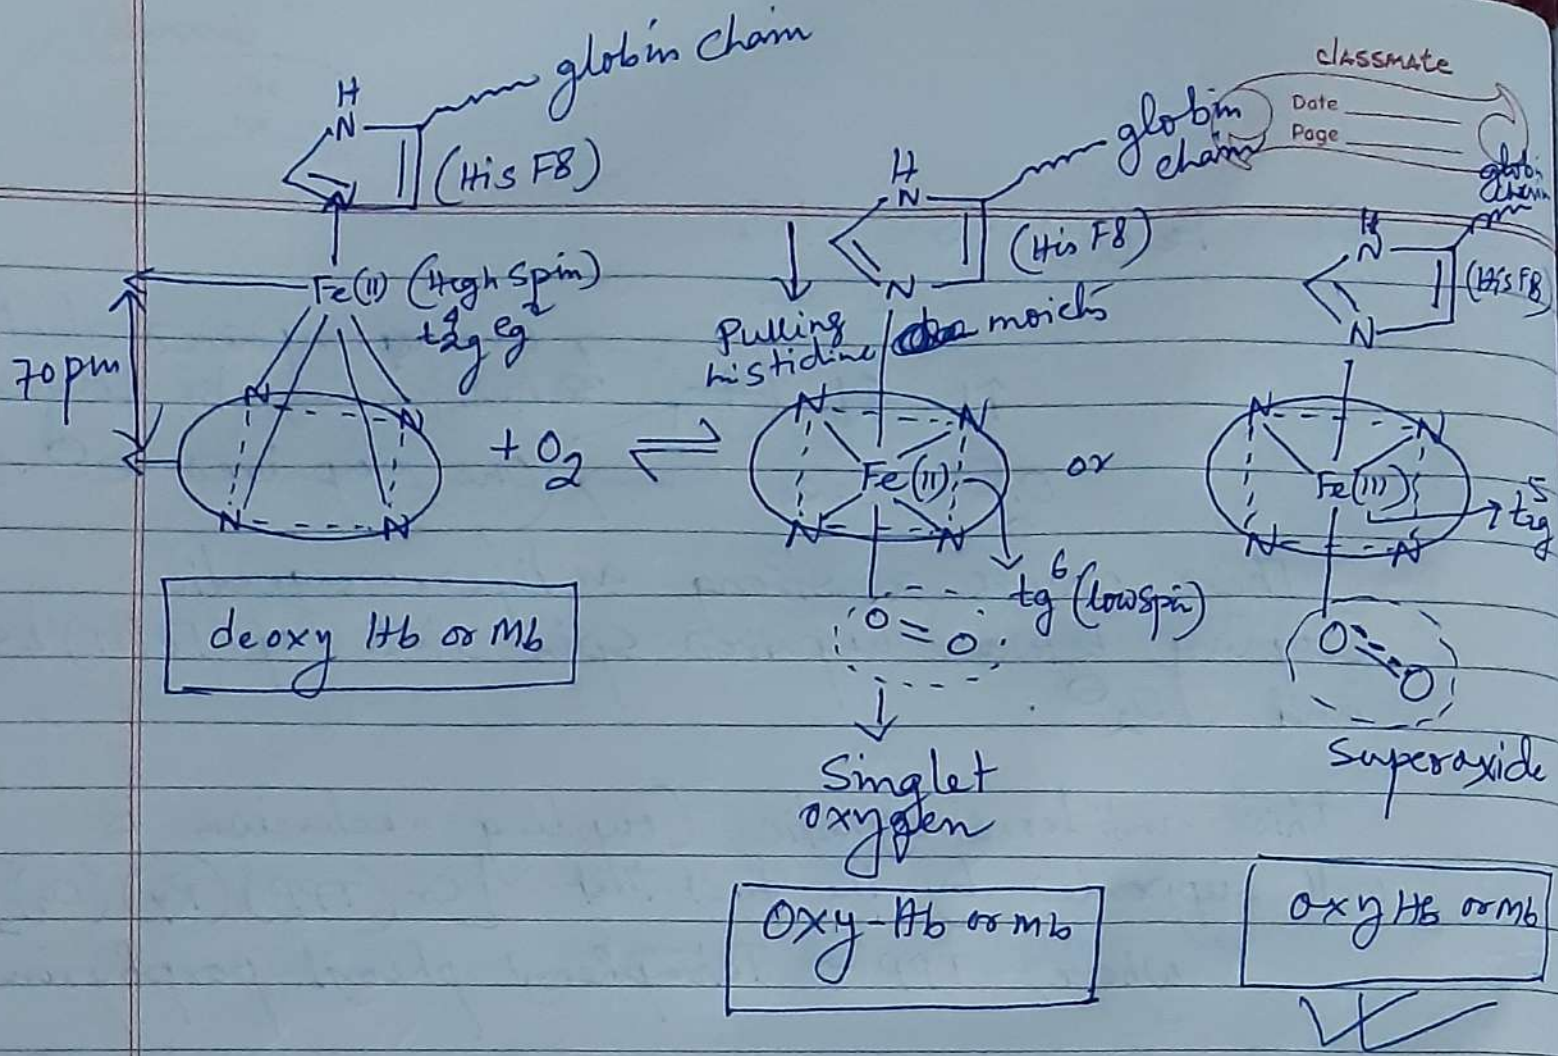 globin chain
H
N
(His F8)
N
Fe(II) (High Spin)
t2g4 eg2
70 pm
N
N
N
N
+ O2 ⇌
deoxy Hb or Mb
classmate
Date
Page
globin
chain
H
N
(His F8)
N
Pulling
histidine
moiety
N
N
Fe(II)
N
N
t2g6 (low spin)
O = O
Singlet
oxygen
Oxy-Hb or Mb
or
globin
chain
H
N
(His F8)
N
N
N
Fe(III)
t2g5
N
N
O
O
Superoxide
oxy Hb or Mb